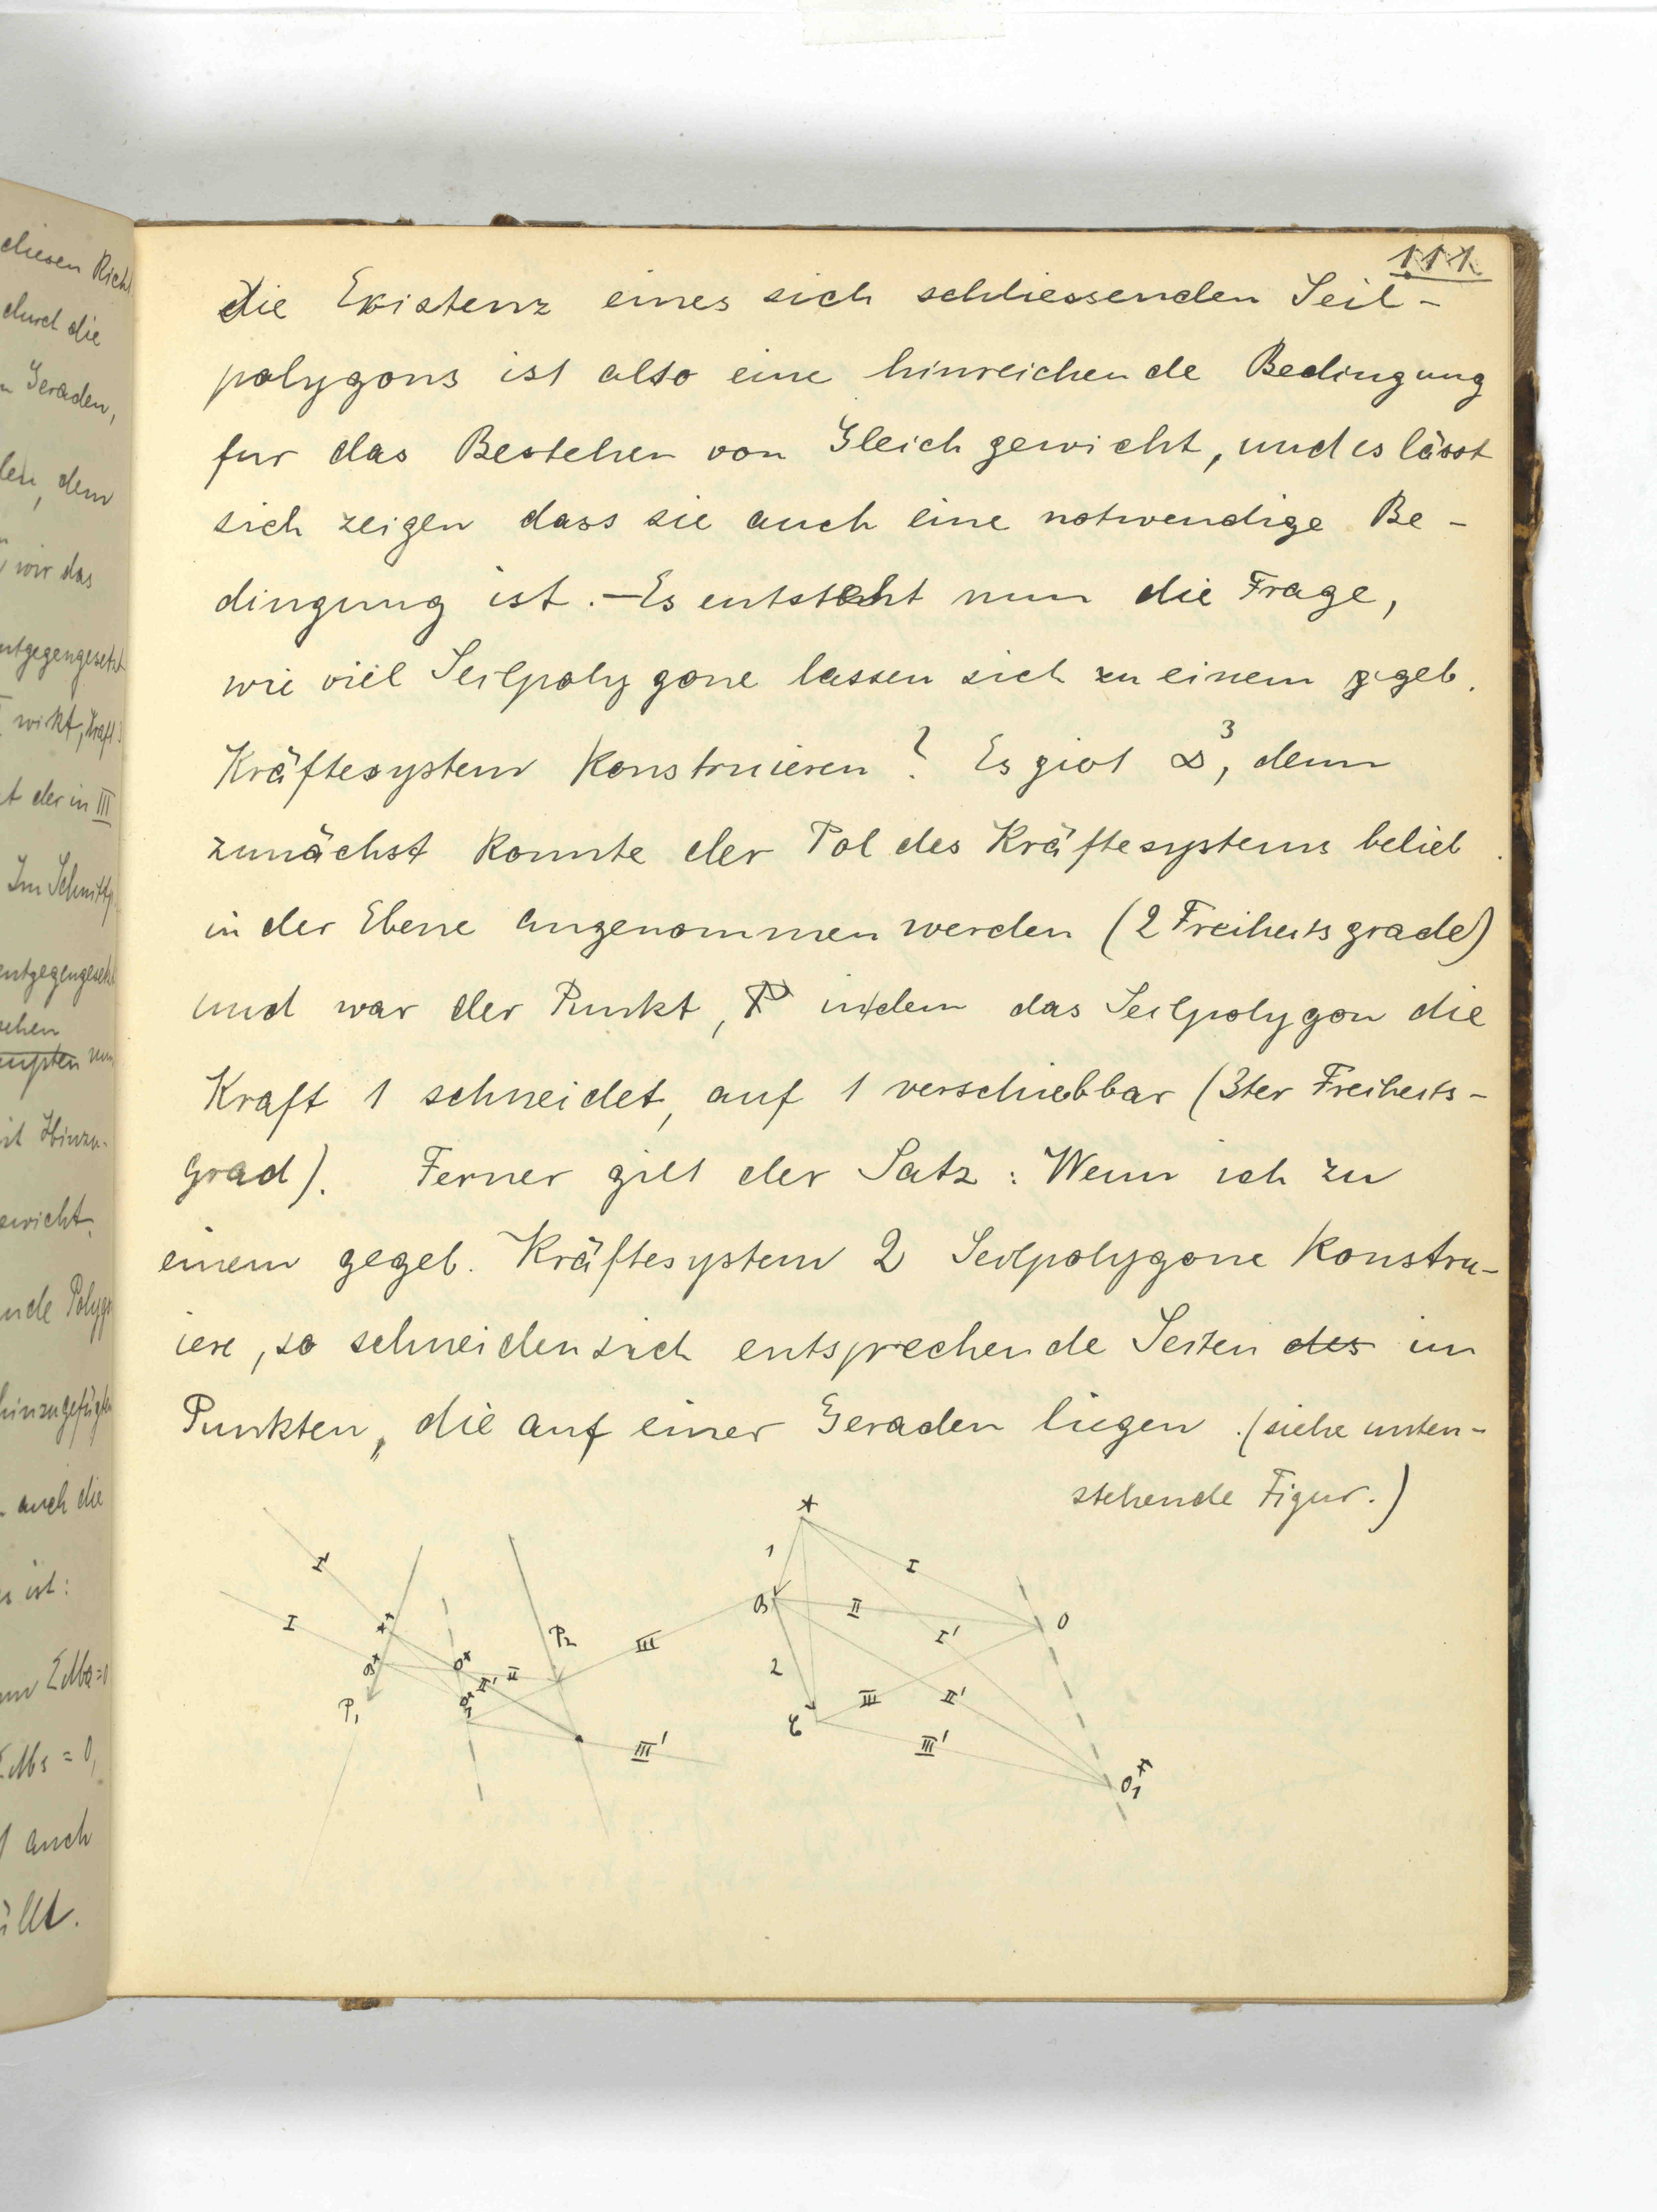 diesen Richt
durch die
n Geraden,
len, dem
wir das
entgegengesetzt
wirkt, Kraft
t der in III
Im Schnittp
entgegengesetzt
sehen
nun
it Hinzu-
ewicht.
nde Polygo
hinzugefügten
auch die
s ist:
= 0,
auch
üllt.
111
die Existenz eines sich schliessenden Seil-
polygons ist also eine hinreichende Bedingung
fur das Bestehen von Gleichgewicht, und es lässt
sich zeigen dass sie auch eine notwendige Be-
dingung ist. — Es entsteht nun die Frage,
wie viel Seilpolygone lassen sich zu einem gegeb.
Kräftesystem konstruieren? Es giebt ∞³, denn
zunächst konnte der Pol des Kräftesystems belieb.
in der Ebene angenommen werden (2 Freiheitsgrade)
und war der Punkt, in dem das Seilpolygon die
Kraft 1 schneidet, auf 1 verschiebbar (3ter Freiheits-
grad). Ferner gilt der Satz: Wenn ich zu
einem gegeb. Kräftesystem 2 Seilpolygone konstru-
iere, so schneiden sich entsprechende Seiten des in
Punkten, die auf einer Geraden liegen. (siehe unten-
stehende Figur.)
I' I P₁ P₂ II II' III III'
1 B 2 C I II I' O III II' III' O₁*